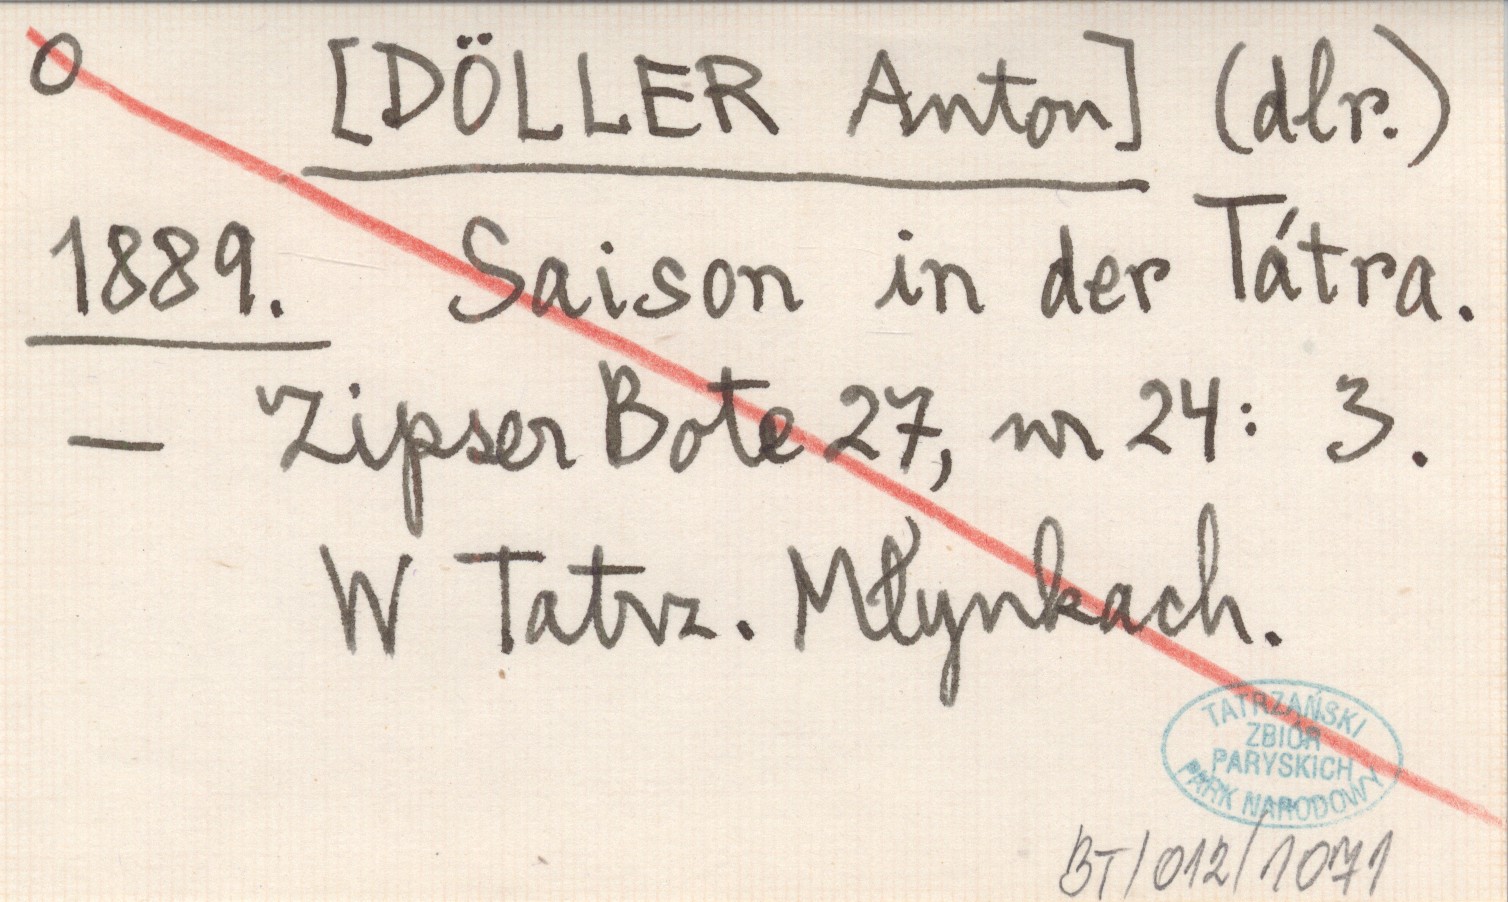 O [DÖLLER Anton] (dlr.)
1889. Saison in der Tátra.
— Zipser Bote 27, nr 24: 3.
W Tatrz. Młynkach.
TATRZAŃSKI
ZBIÓR
PARYSKICH
PARK NARODOWY
BT/012/1071